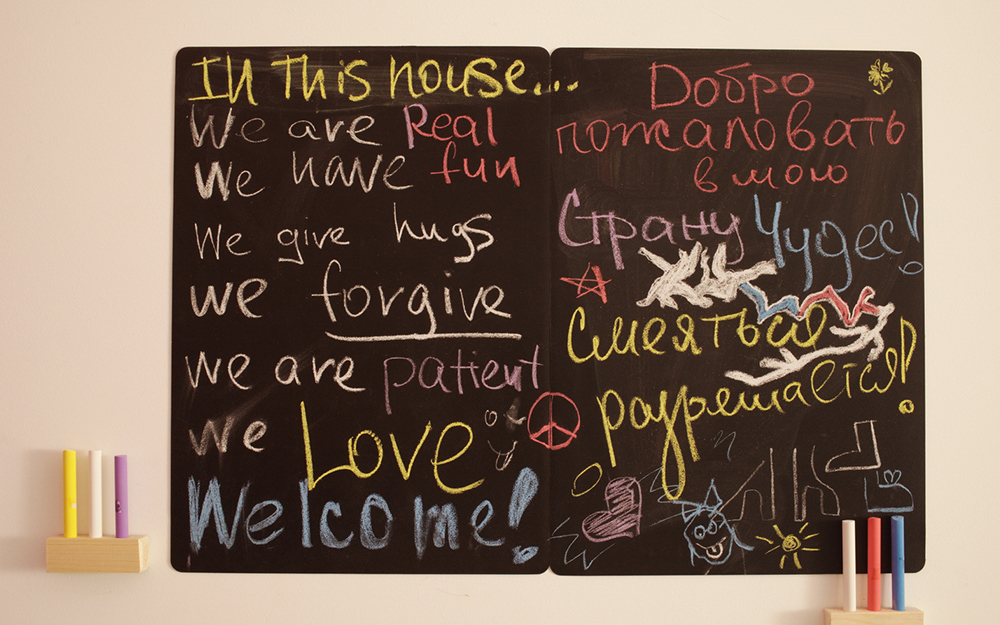 In This house...
We are Real
We have fun
We give hugs
we forgive
we are patient
we Love
Welcome!
Добро
пожаловать
в мою
Страну Чудес!
Смеяться
разрешается!